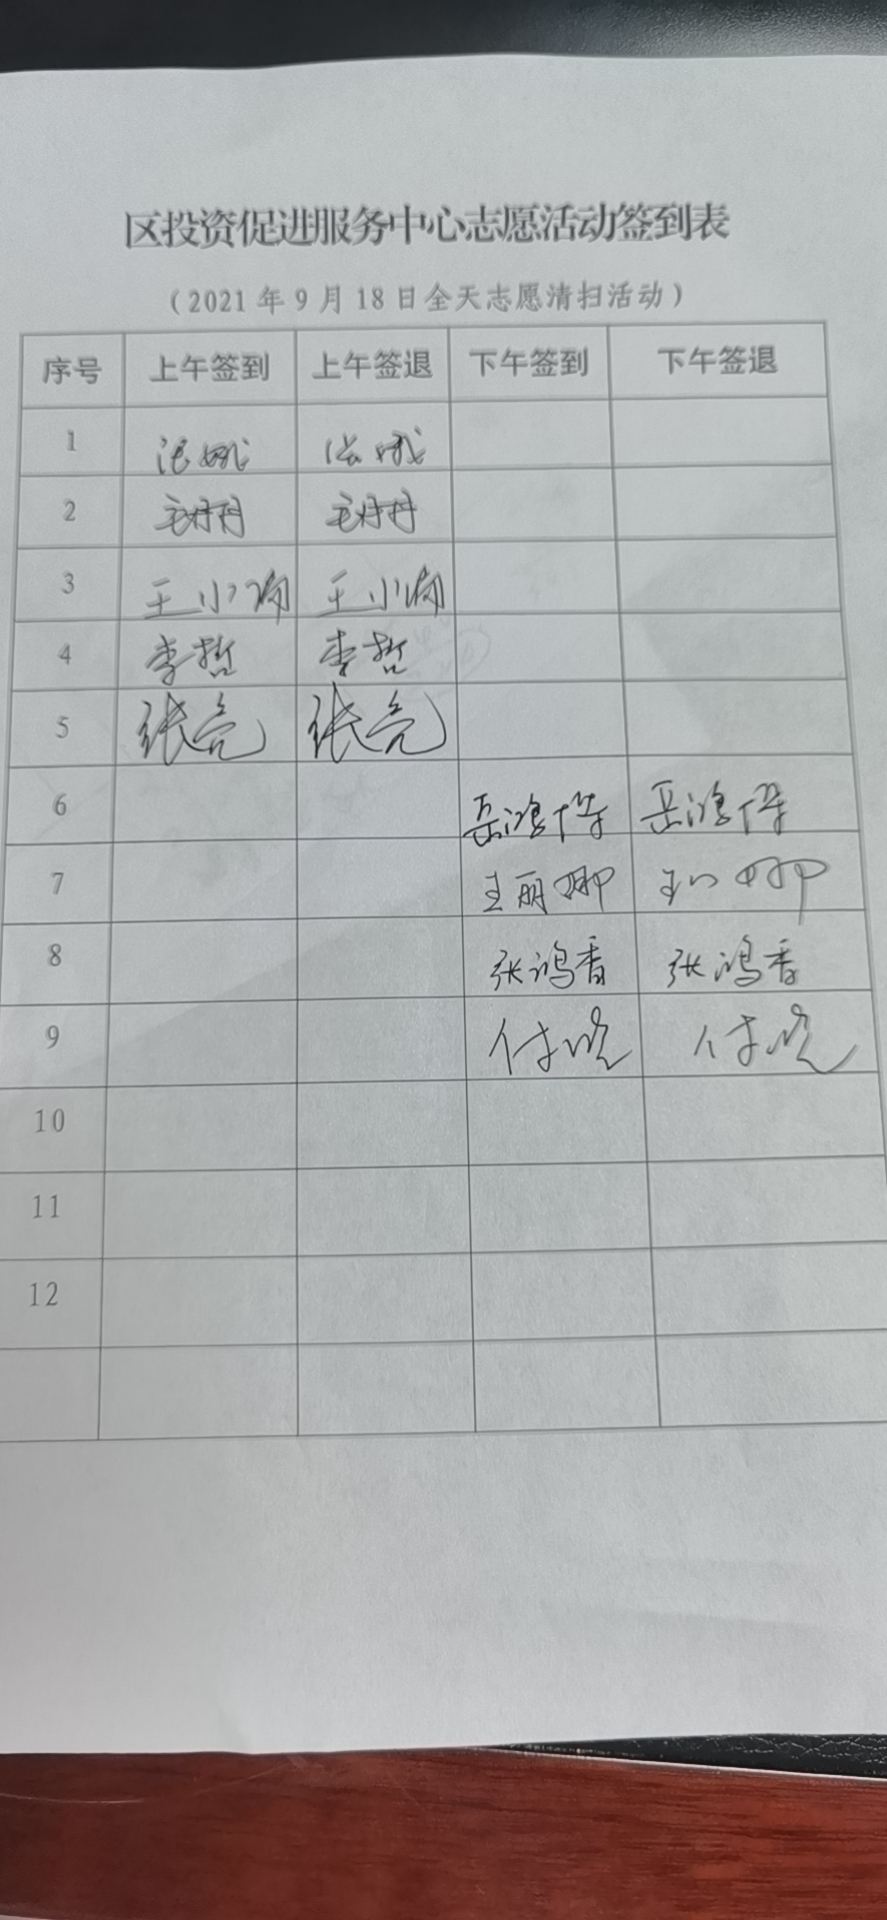 区投资促进服务中心志愿活动签到表
（2021年9月18日全天志愿清扫活动）
序号 上午签到 上午签退 下午签到 下午签退
1
2 毛丹丹 毛丹丹
3 王小 王小
4 李哲 李哲
5 张亮 张亮
6 岳鸿 岳鸿
7 王丽娜 王丽娜
8 张鸿香 张鸿香
9 付晓 付晓
10
11
12